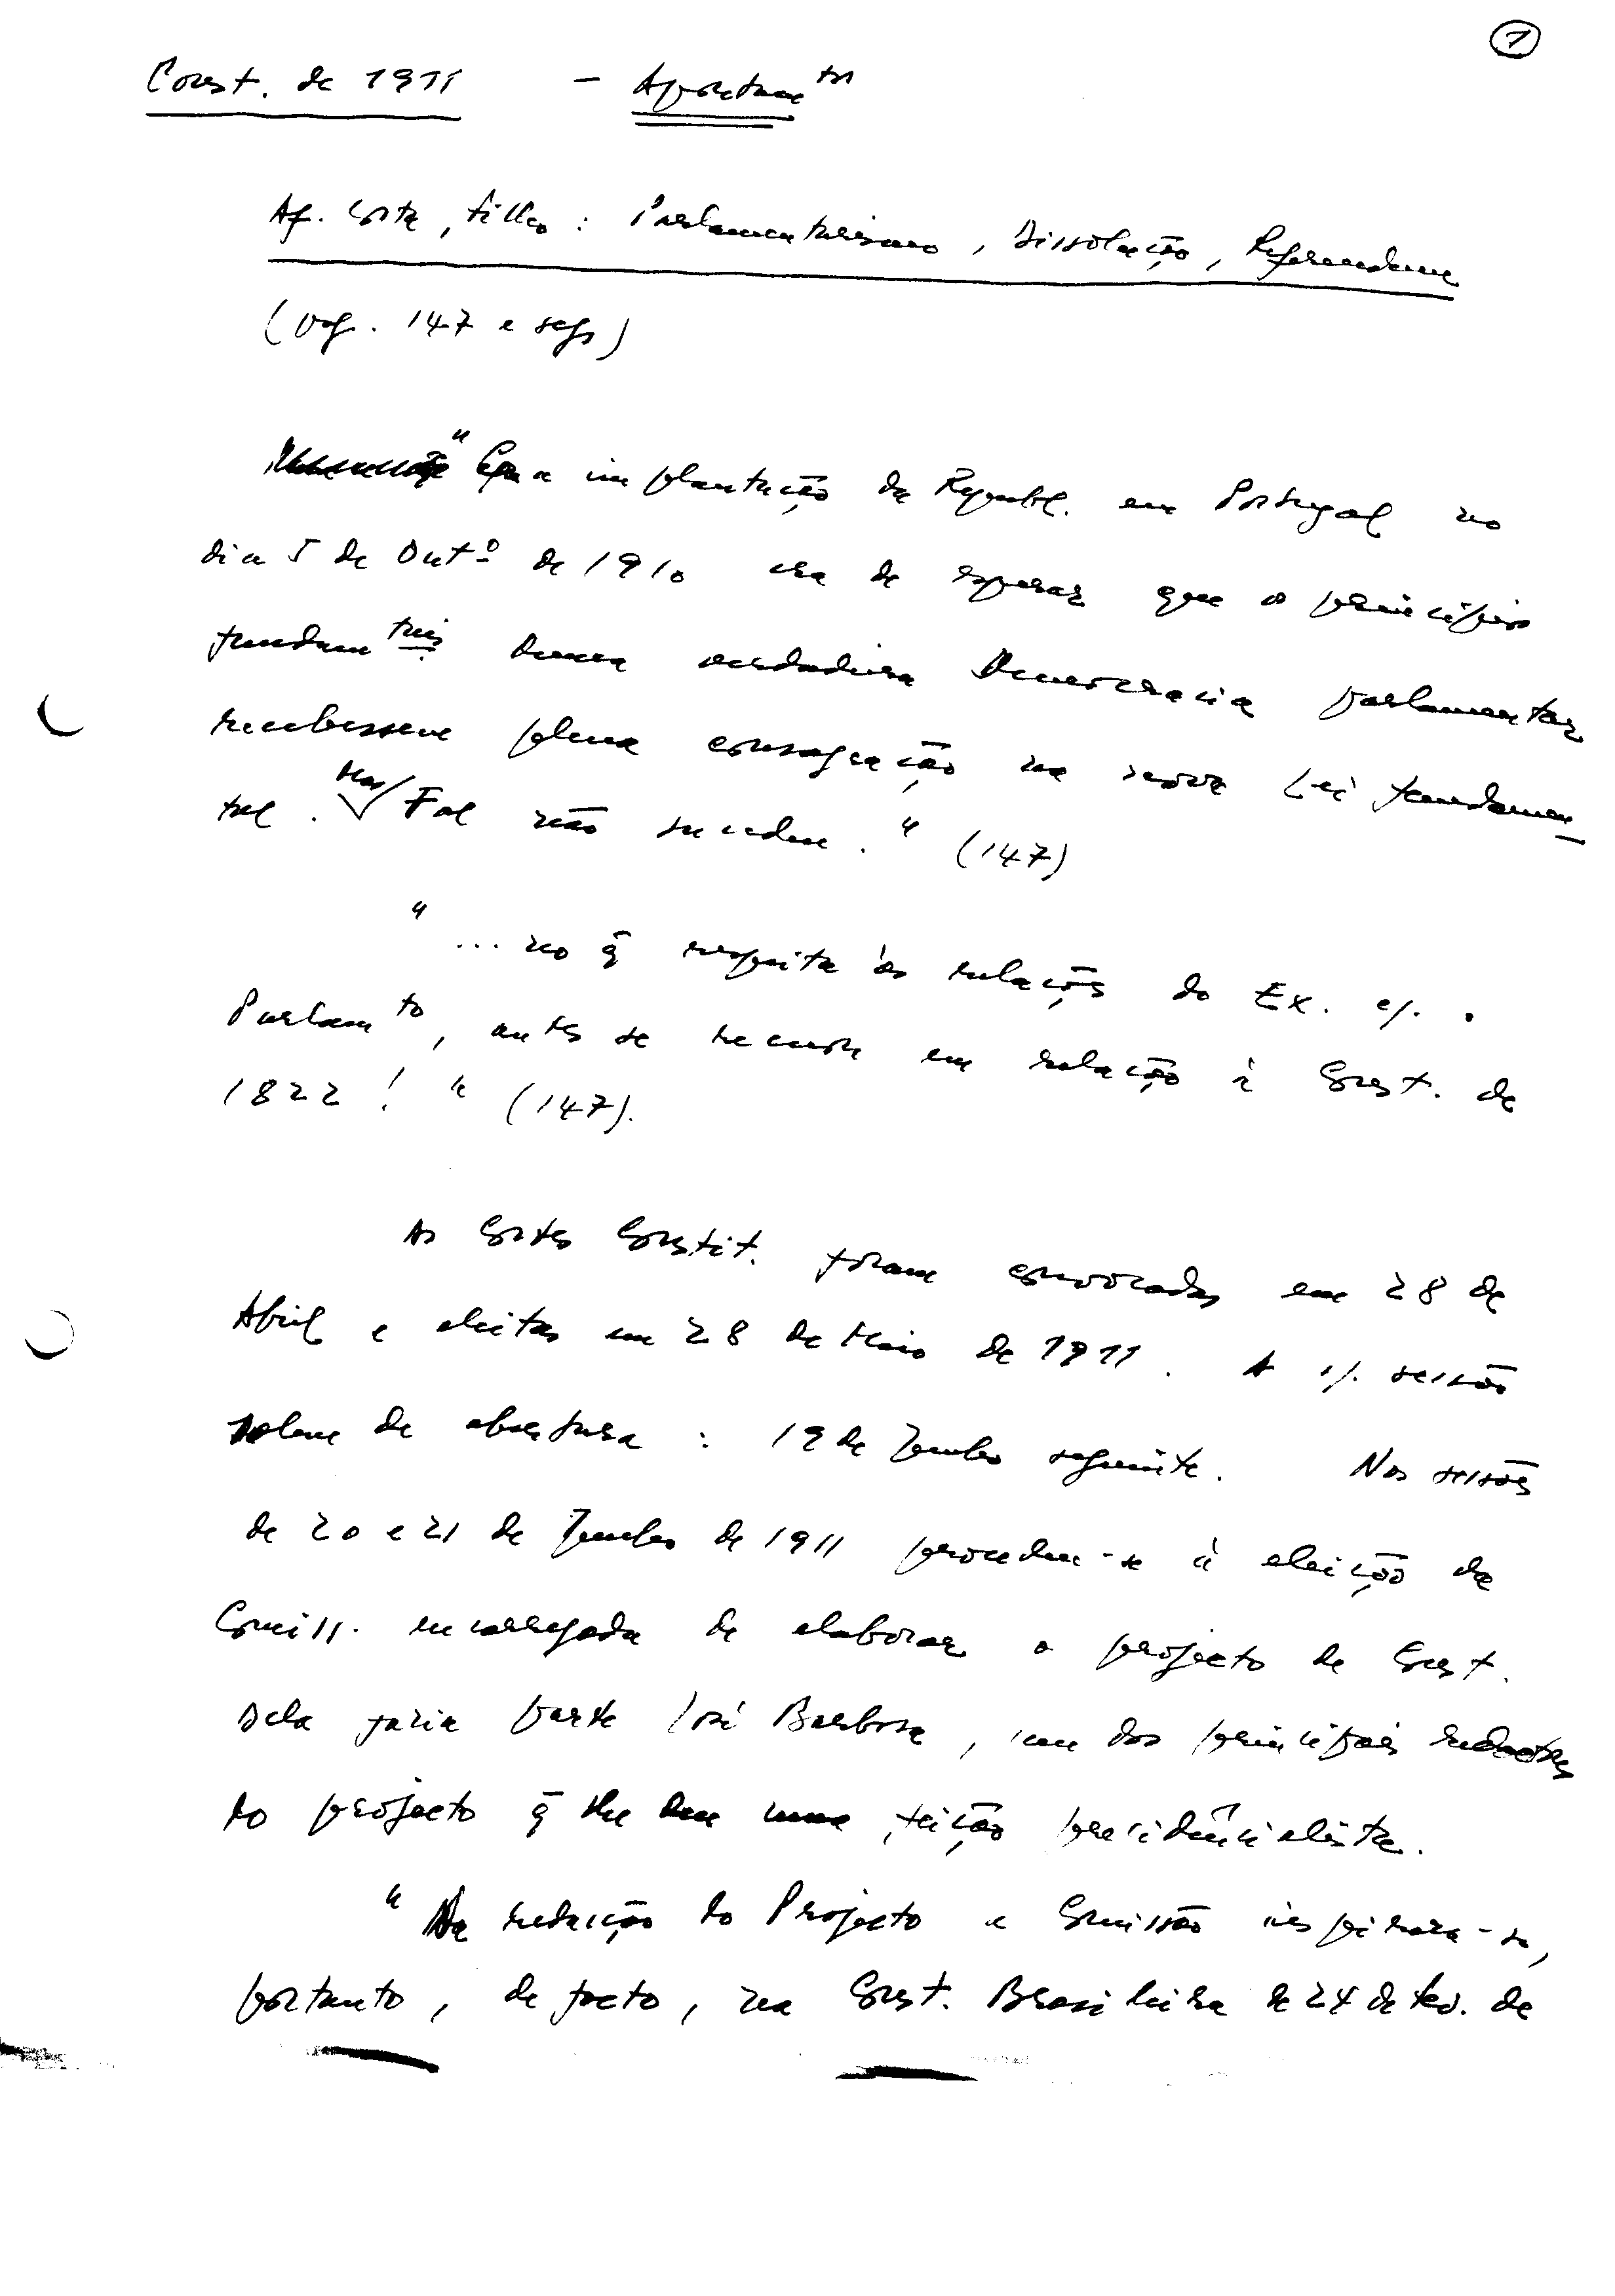 1
Const. de 1911 - Apontam tos
Af. Costa, filho : Parlamentarismo, Dissolução, Referendum
(pág. 147 e segs)
" Com a implantação da Republ. em Portugal no
dia 5 de Out.º de 1910 era de esperar que os princípios
fundam tais duma verdadeira Democracia parlamentar
recebessem plena consagração na nova Lei fundamen-
tal. Mas Tal não sucedeu. " (147)
" ... no q̃ respeita às relações do Ex. c/. o
Parlam to, antes se recuou em relação à Const. de
1822 ! " (147).
As Cortes Constit. foram convocadas em 28 de
Abril e eleitas em 28 de Maio de 1911. A 1/. sessão
solene de abertura : 19 de Junho seguinte. Nas sessões
de 20 e 21 de Junho de 1911 procedeu-se à eleição da
Comiss. encarregada de elaborar o projecto de Const.
Dela fazia parte José Barbosa, um dos principais redactores
do projecto q̃ lhe deu uma feição presidêncialista.
" Na redacção do Projecto a Comissão inspirara-se,
portanto, de facto, na Const. Brasileira de 24 de Fev. de